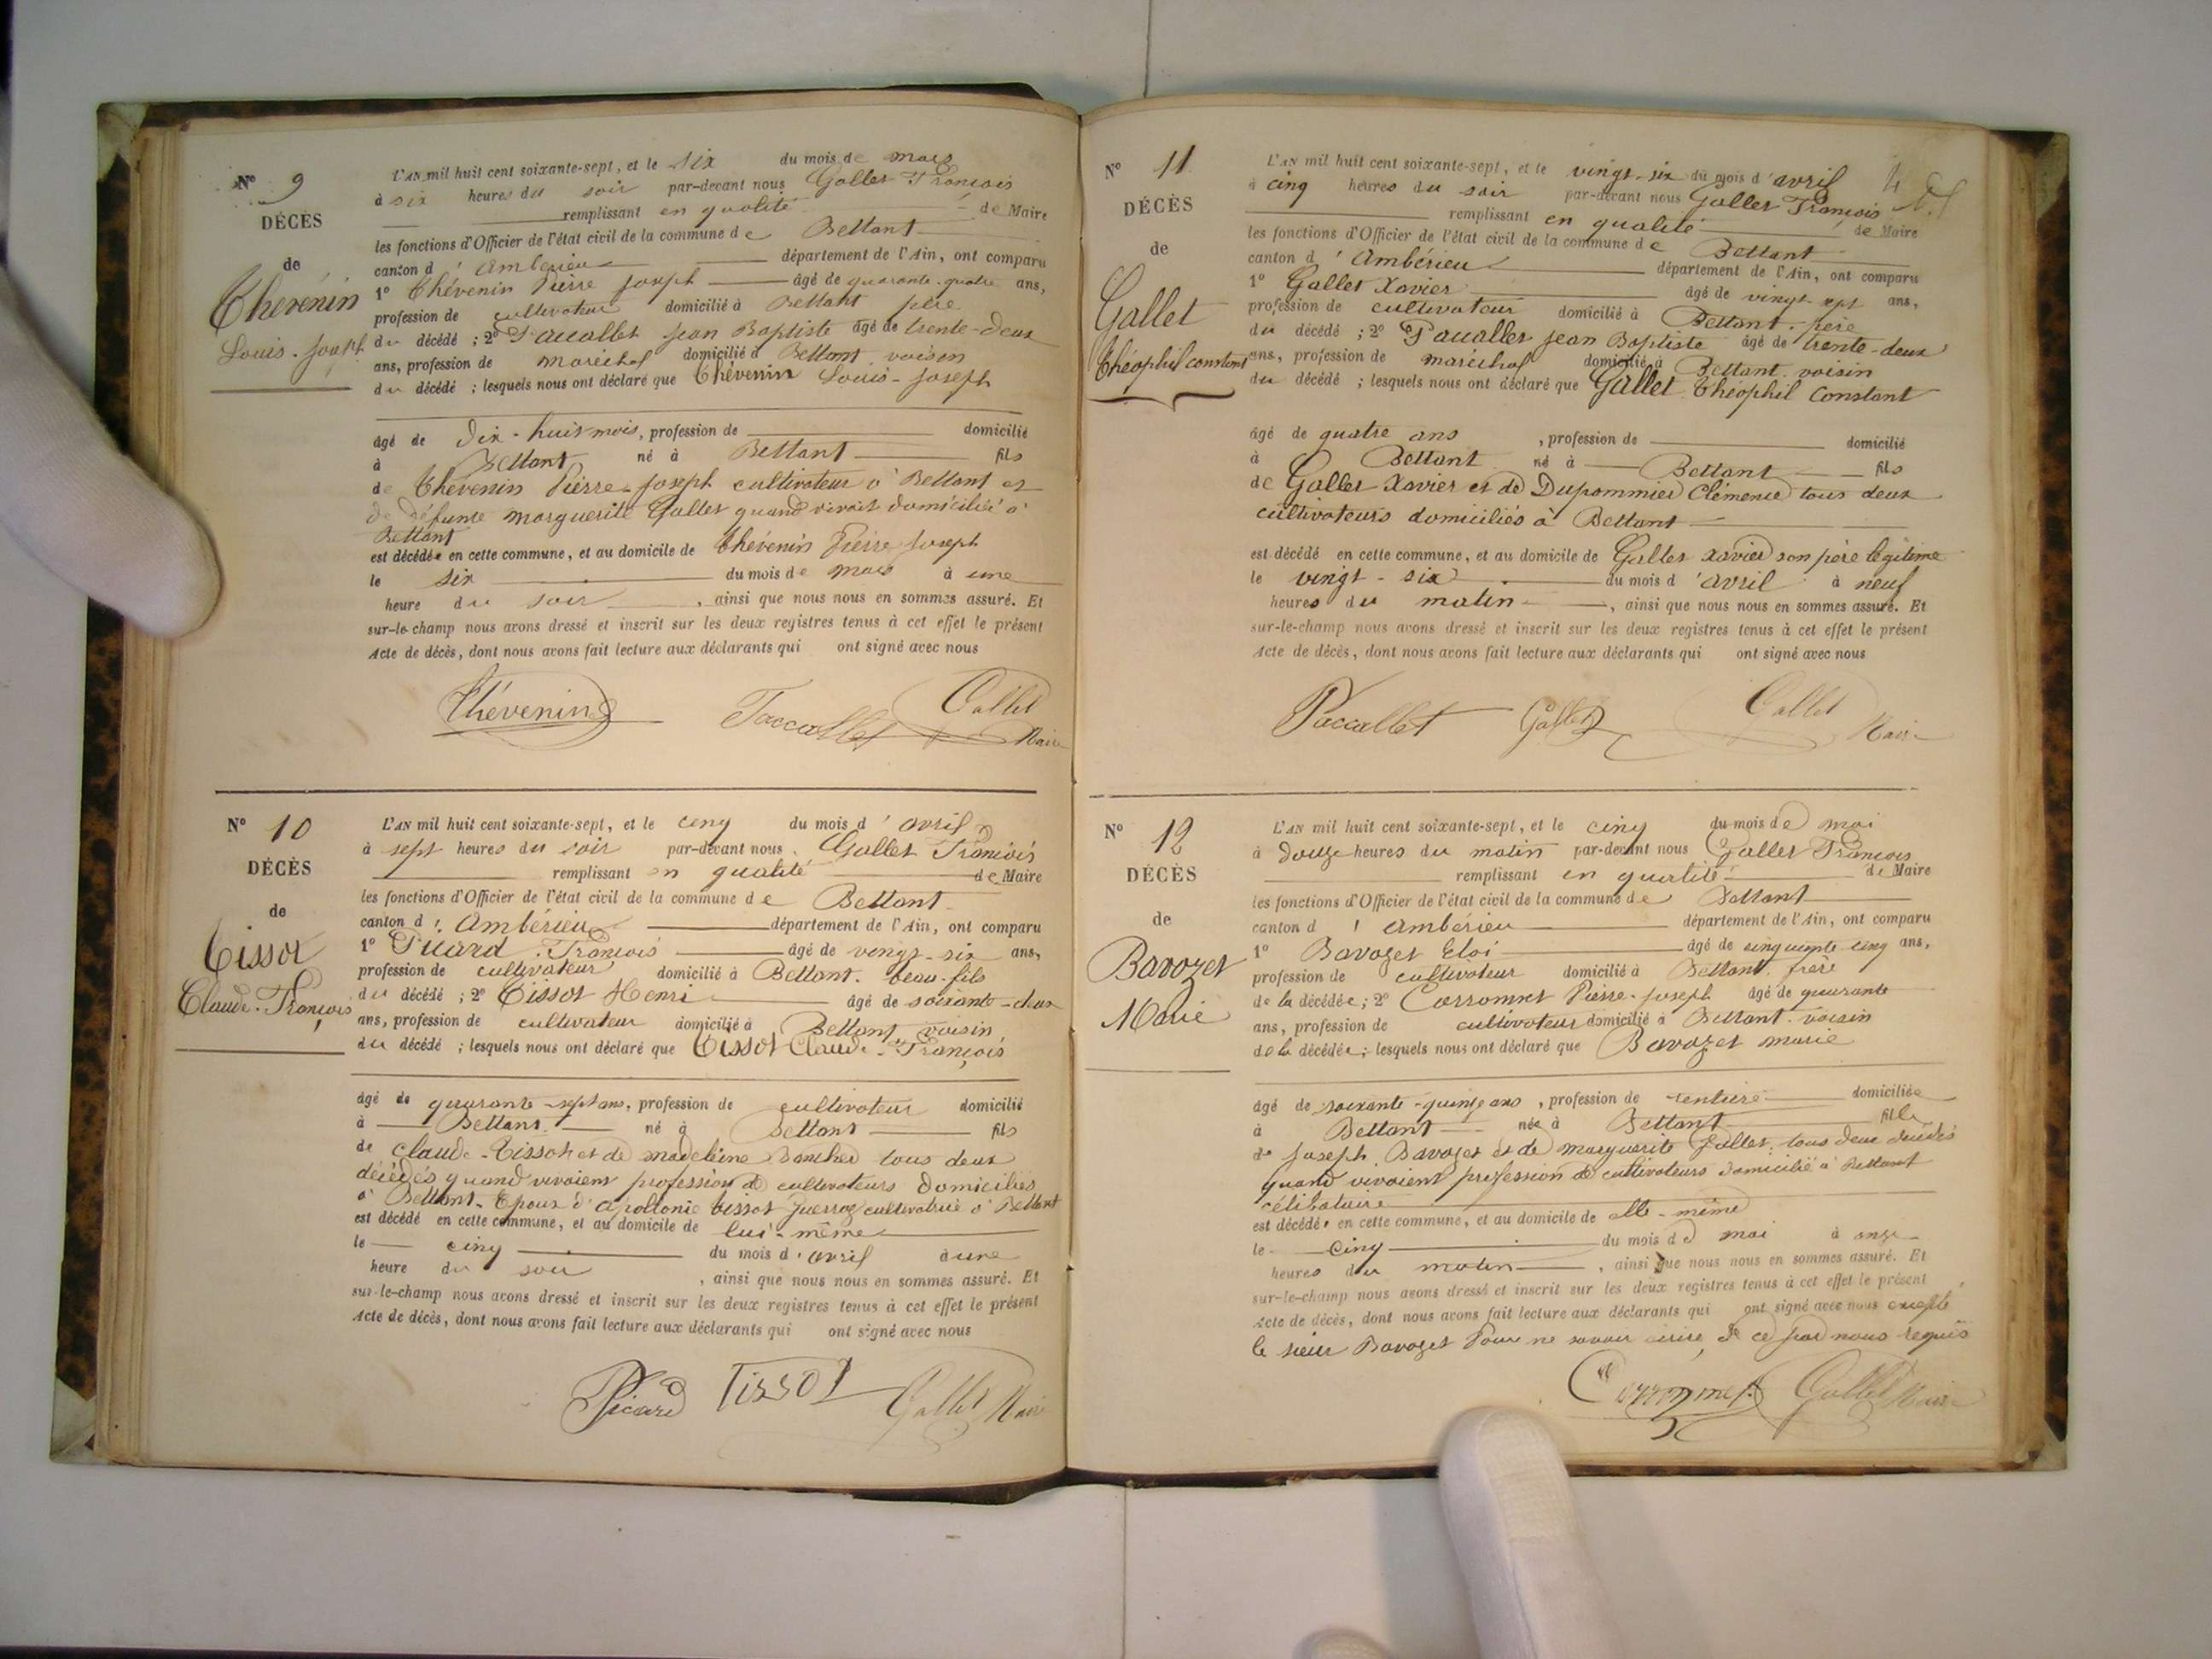 N° 9
DÉCÈS
de
Thévenin
Louis-Joseph
L'AN mil huit cent soixante-sept, et le six du mois de mars
à six heures du soir par-devant nous Gallet François
remplissant en qualité de Maire
les fonctions d'Officier de l'état civil de la commune de Bettant
canton d'Ambérieu département de l'Ain, ont comparu
1° Thévenin Pierre Joseph âgé de quarante-quatre ans,
profession de cultivateur domicilié à Bettant père
du décédé ; 2° Paccallet Jean Baptiste âgé de trente-deux
ans, profession de maréchal domicilié à Bettant voisin
du décédé ; lesquels nous ont déclaré que Thévenin Louis-Joseph
âgé de dix-huit mois, profession de domicilié
à Bettant né à Bettant fils
de Thévenin Pierre-Joseph cultivateur à Bettant et
de défunte Marguerite Gallet quand vivait domiciliée à
Bettant
est décédé en cette commune, et au domicile de Thévenin Pierre Joseph
le six du mois de mars à une
heure du soir, ainsi que nous nous en sommes assuré. Et
sur-le-champ nous avons dressé et inscrit sur les deux registres tenus à cet effet le présent
Acte de décès, dont nous avons fait lecture aux déclarants qui ont signé avec nous
Thévenin Paccallet Gallet Maire
N° 10
DÉCÈS
de
Tissot
Claude-François
L'AN mil huit cent soixante-sept, et le cinq du mois d'avril
à sept heures du soir par-devant nous Gallet François
remplissant en qualité de Maire
les fonctions d'Officier de l'état civil de la commune de Bettant
canton d'Ambérieu département de l'Ain, ont comparu
1° François âgé de vingt-six ans,
profession de cultivateur domicilié à Bettant. beau-fils
du décédé ; 2° Tissot Henri âgé de soixante-deux
ans, profession de cultivateur domicilié à Bettant voisin
du décédé ; lesquels nous ont déclaré que Tissot Claude-François
âgé de quarante-sept ans, profession de cultivateur domicilié
à Bettant né à Bettant fils
de Claude-Tissot et de Madeleine tous deux
décédés quand vivaient profession de cultivateurs domiciliés
à Bettant. Epoux d'Apollonie Tissot cultivatrice à Bettant
est décédé en cette commune, et au domicile de lui-même
le cinq du mois d'avril à une
heure du soir, ainsi que nous nous en sommes assuré. Et
sur-le-champ nous avons dressé et inscrit sur les deux registres tenus à cet effet le présent
Acte de décès, dont nous avons fait lecture aux déclarants qui ont signé avec nous
Picard Tissot Gallet Maire
N° 11
DÉCÈS
de
Gallet
Théophil constant
L'AN mil huit cent soixante-sept, et le vingt-six du mois d'avril
à cinq heures du soir par-devant nous Gallet François
remplissant en qualité de Maire
les fonctions d'Officier de l'état civil de la commune de Bettant
canton d'Ambérieu département de l'Ain, ont comparu
1° Gallet Xavier âgé de vingt-sept ans,
profession de cultivateur domicilié à Bettant. père
du décédé ; 2° Paccallet Jean Baptiste âgé de trente-deux
ans, profession de maréchal domicilié à Bettant. voisin
du décédé ; lesquels nous ont déclaré que Gallet Théophil Constant
âgé de quatre ans, profession de domicilié
à Bettant né à Bettant fils
de Gallet Xavier et de Dupommier Clémence tous deux
cultivateurs domiciliés à Bettant
est décédé en cette commune, et au domicile de Gallet Xavier son père légitime
le vingt-six du mois d'avril à neuf
heures du matin, ainsi que nous nous en sommes assuré. Et
sur-le-champ nous avons dressé et inscrit sur les deux registres tenus à cet effet le présent
Acte de décès, dont nous avons fait lecture aux déclarants qui ont signé avec nous
Paccallet Gallet Gallet Maire
N° 12
DÉCÈS
de
Bavozet
Marie
L'AN mil huit cent soixante-sept, et le cinq du mois de mai
à douze heures du matin par-devant nous Gallet François
remplissant en qualité de Maire
les fonctions d'Officier de l'état civil de la commune de Bettant
canton d'Ambérieu département de l'Ain, ont comparu
1° Bavozet Eloi âgé de cinquante-cinq ans,
profession de cultivateur domicilié à Bettant. frère
de la décédée ; 2° Carronnet Pierre-Joseph âgé de quarante
ans, profession de cultivateur domicilié à Bettant. voisin
de la décédée ; lesquels nous ont déclaré que Bavozet Marie
âgé de soixante-quinze ans, profession de rentière domiciliée
à Bettant née à Bettant fille
de Joseph Bavozet et de Marguerite Gallet, tous deux décédés
quand vivaient profession de cultivateurs domicilié à Bettant
célibataire
est décédée en cette commune, et au domicile de elle-même
le cinq du mois de mai à onze
heures du matin, ainsi que nous nous en sommes assuré. Et
sur-le-champ nous avons dressé et inscrit sur les deux registres tenus à cet effet le présent
Acte de décès, dont nous avons fait lecture aux déclarants qui ont signé avec nous excepté
le sieur Bavozet pour ne savoir écrire, de ce par nous requis
Carronnet Gallet Maire